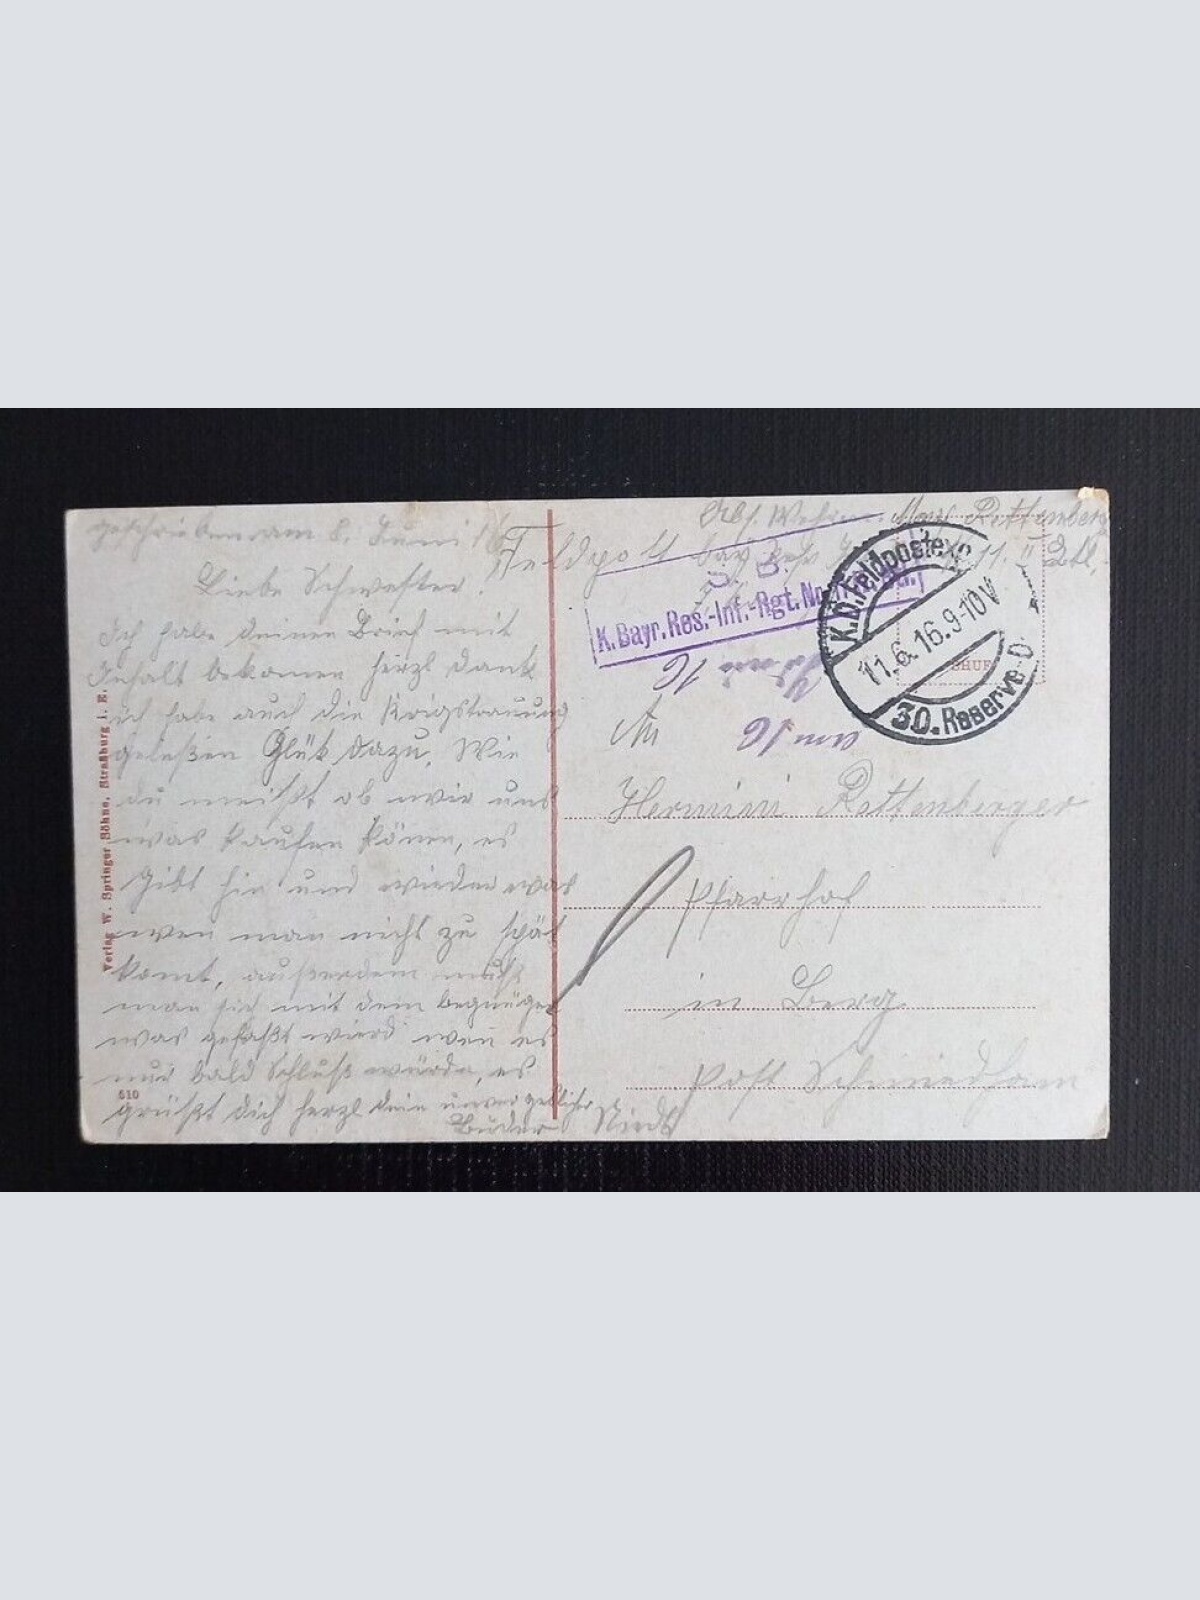 geschrieben am 8. Juni 16
Liebe Schwester!
Ich habe deinen Brief mit
Inhalt bekomen herzl dank
ich habe auch die Krigstrauung
geleßen Glük dazu. Wie
du meißt ob wir uns
was kaufen könen, es
gibt hin und wieder was
wen man nicht zu spät
komt, außerdem muß
man sich mit dem begnügen
was gefaßt wierd wen es
nur bald Schluß würde, es
grüßt dich herzl dein unvergeßlicher
Bruder
Verlag W. Springer Söhne, Straßburg i. E.
510
Abs. Rettenberger
Feldpost bay 11. II
S. B.
K. Bayr. Res.-Inf.-Rgt. No.
K.D. Feldpostexp.
11.6.16.9-10V
30. Reserve-D.
16
16
An
Hermine Rettenberger
Pfarrhof
in Berg
Post Schmiedham